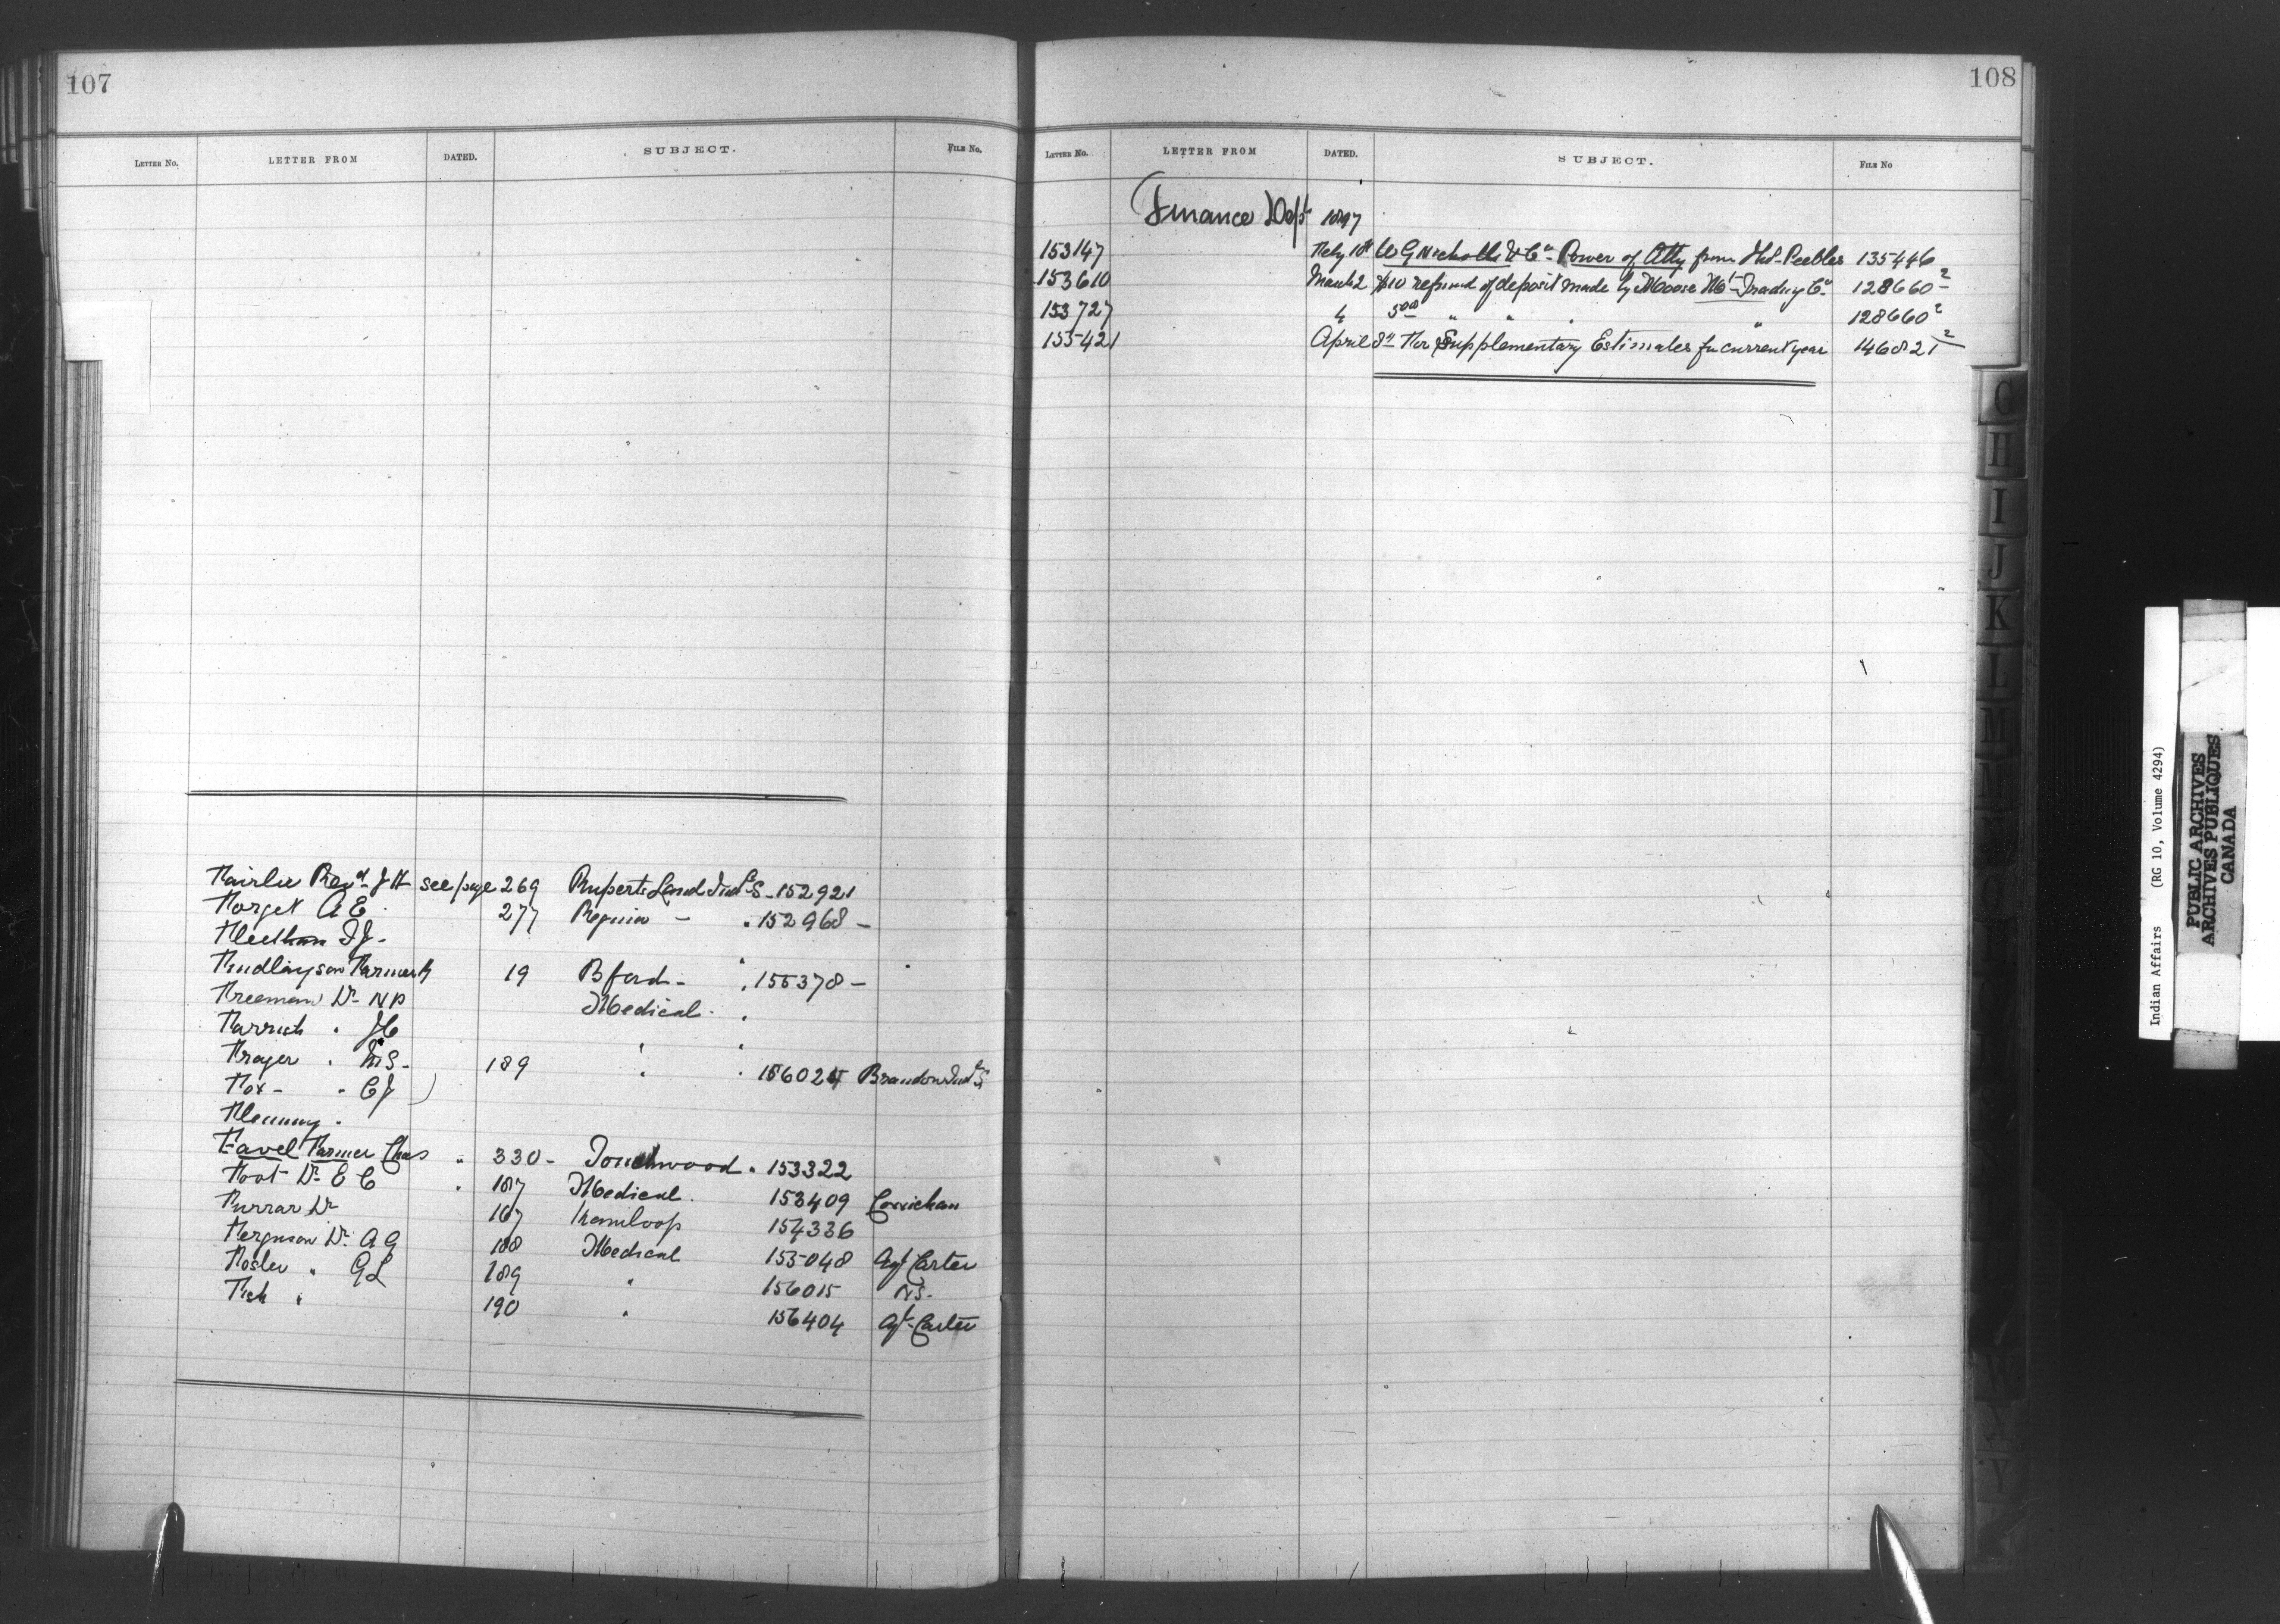 107
LETTER No. LETTER FROM DATED. SUBJECT. FILE No.
Fairlie Revd J H see page 269 Ruperts Land Indl S - 152921
Forget A E 277 Regina - " 152968 -
F J -
Findlayson Farmer 19 B ford - " 155378 -
Freeman Dr N P Medical "
Parrish " J C " "
Frazer " M S - 189 " " 156024 Brandon Indl S
Fox - " C J )
Flemming "
Favel Farmer Chas " 330 - Touchwood " 153322
Foot Dr E C " 187 Medical 153409 Cowichan
Furrar Dr 167 Kamloop 154336
Ferguson Dr A G 188 Medical 155048 Agt Carter
Foster " G L 189 " 156015 N S -
Fish " 190 " 156404 Agt Carter
108
LETTER No. LETTER FROM DATED. SUBJECT. FILE No
Finance Dept 1897
153147 Feby 10th W G Nicholls & Co - Power of Atty from Peebles 135446
153610 March 2 $10 refund of deposit made by Moose Mt Trading Co 128660-2
153727 4 5 00 " " " " 128660 2
155421 April 8th For Supplementary Estimates for current year 146821 2
G
H
I
J
K
L
M
W
X
Y
Indian Affairs (RG 10, Volume 4294)
PUBLIC ARCHIVES
ARCHIVES PUBLIQUES
CANADA